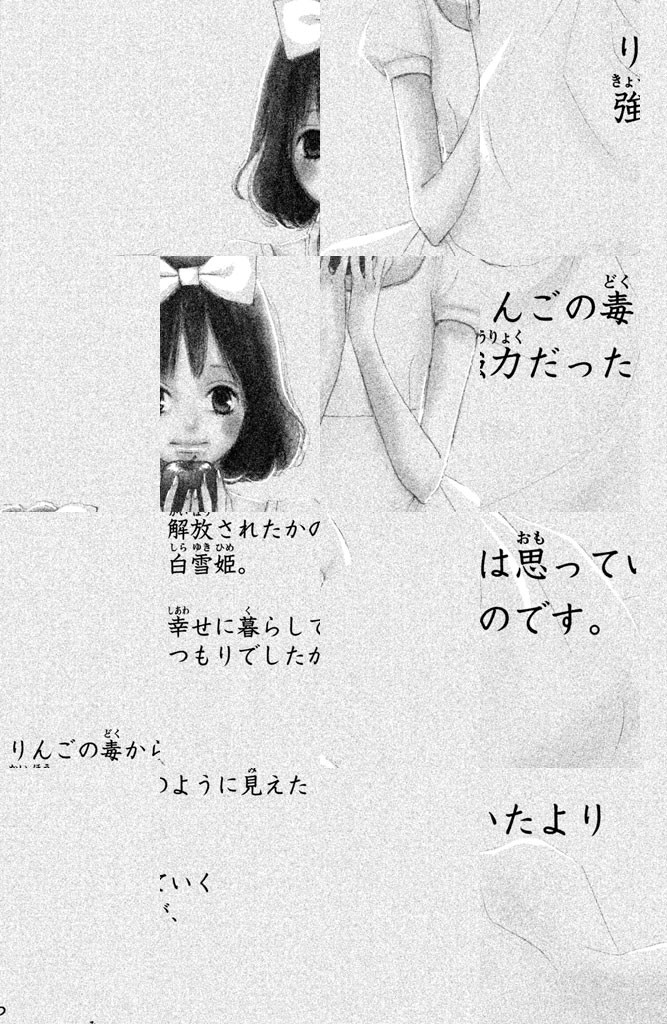 りんごの毒から
解放されたかのように見えた
白雪姫。
幸せに暮らしていく
つもりでしたが、
りんごの毒は思っていたより
強力だったのです。